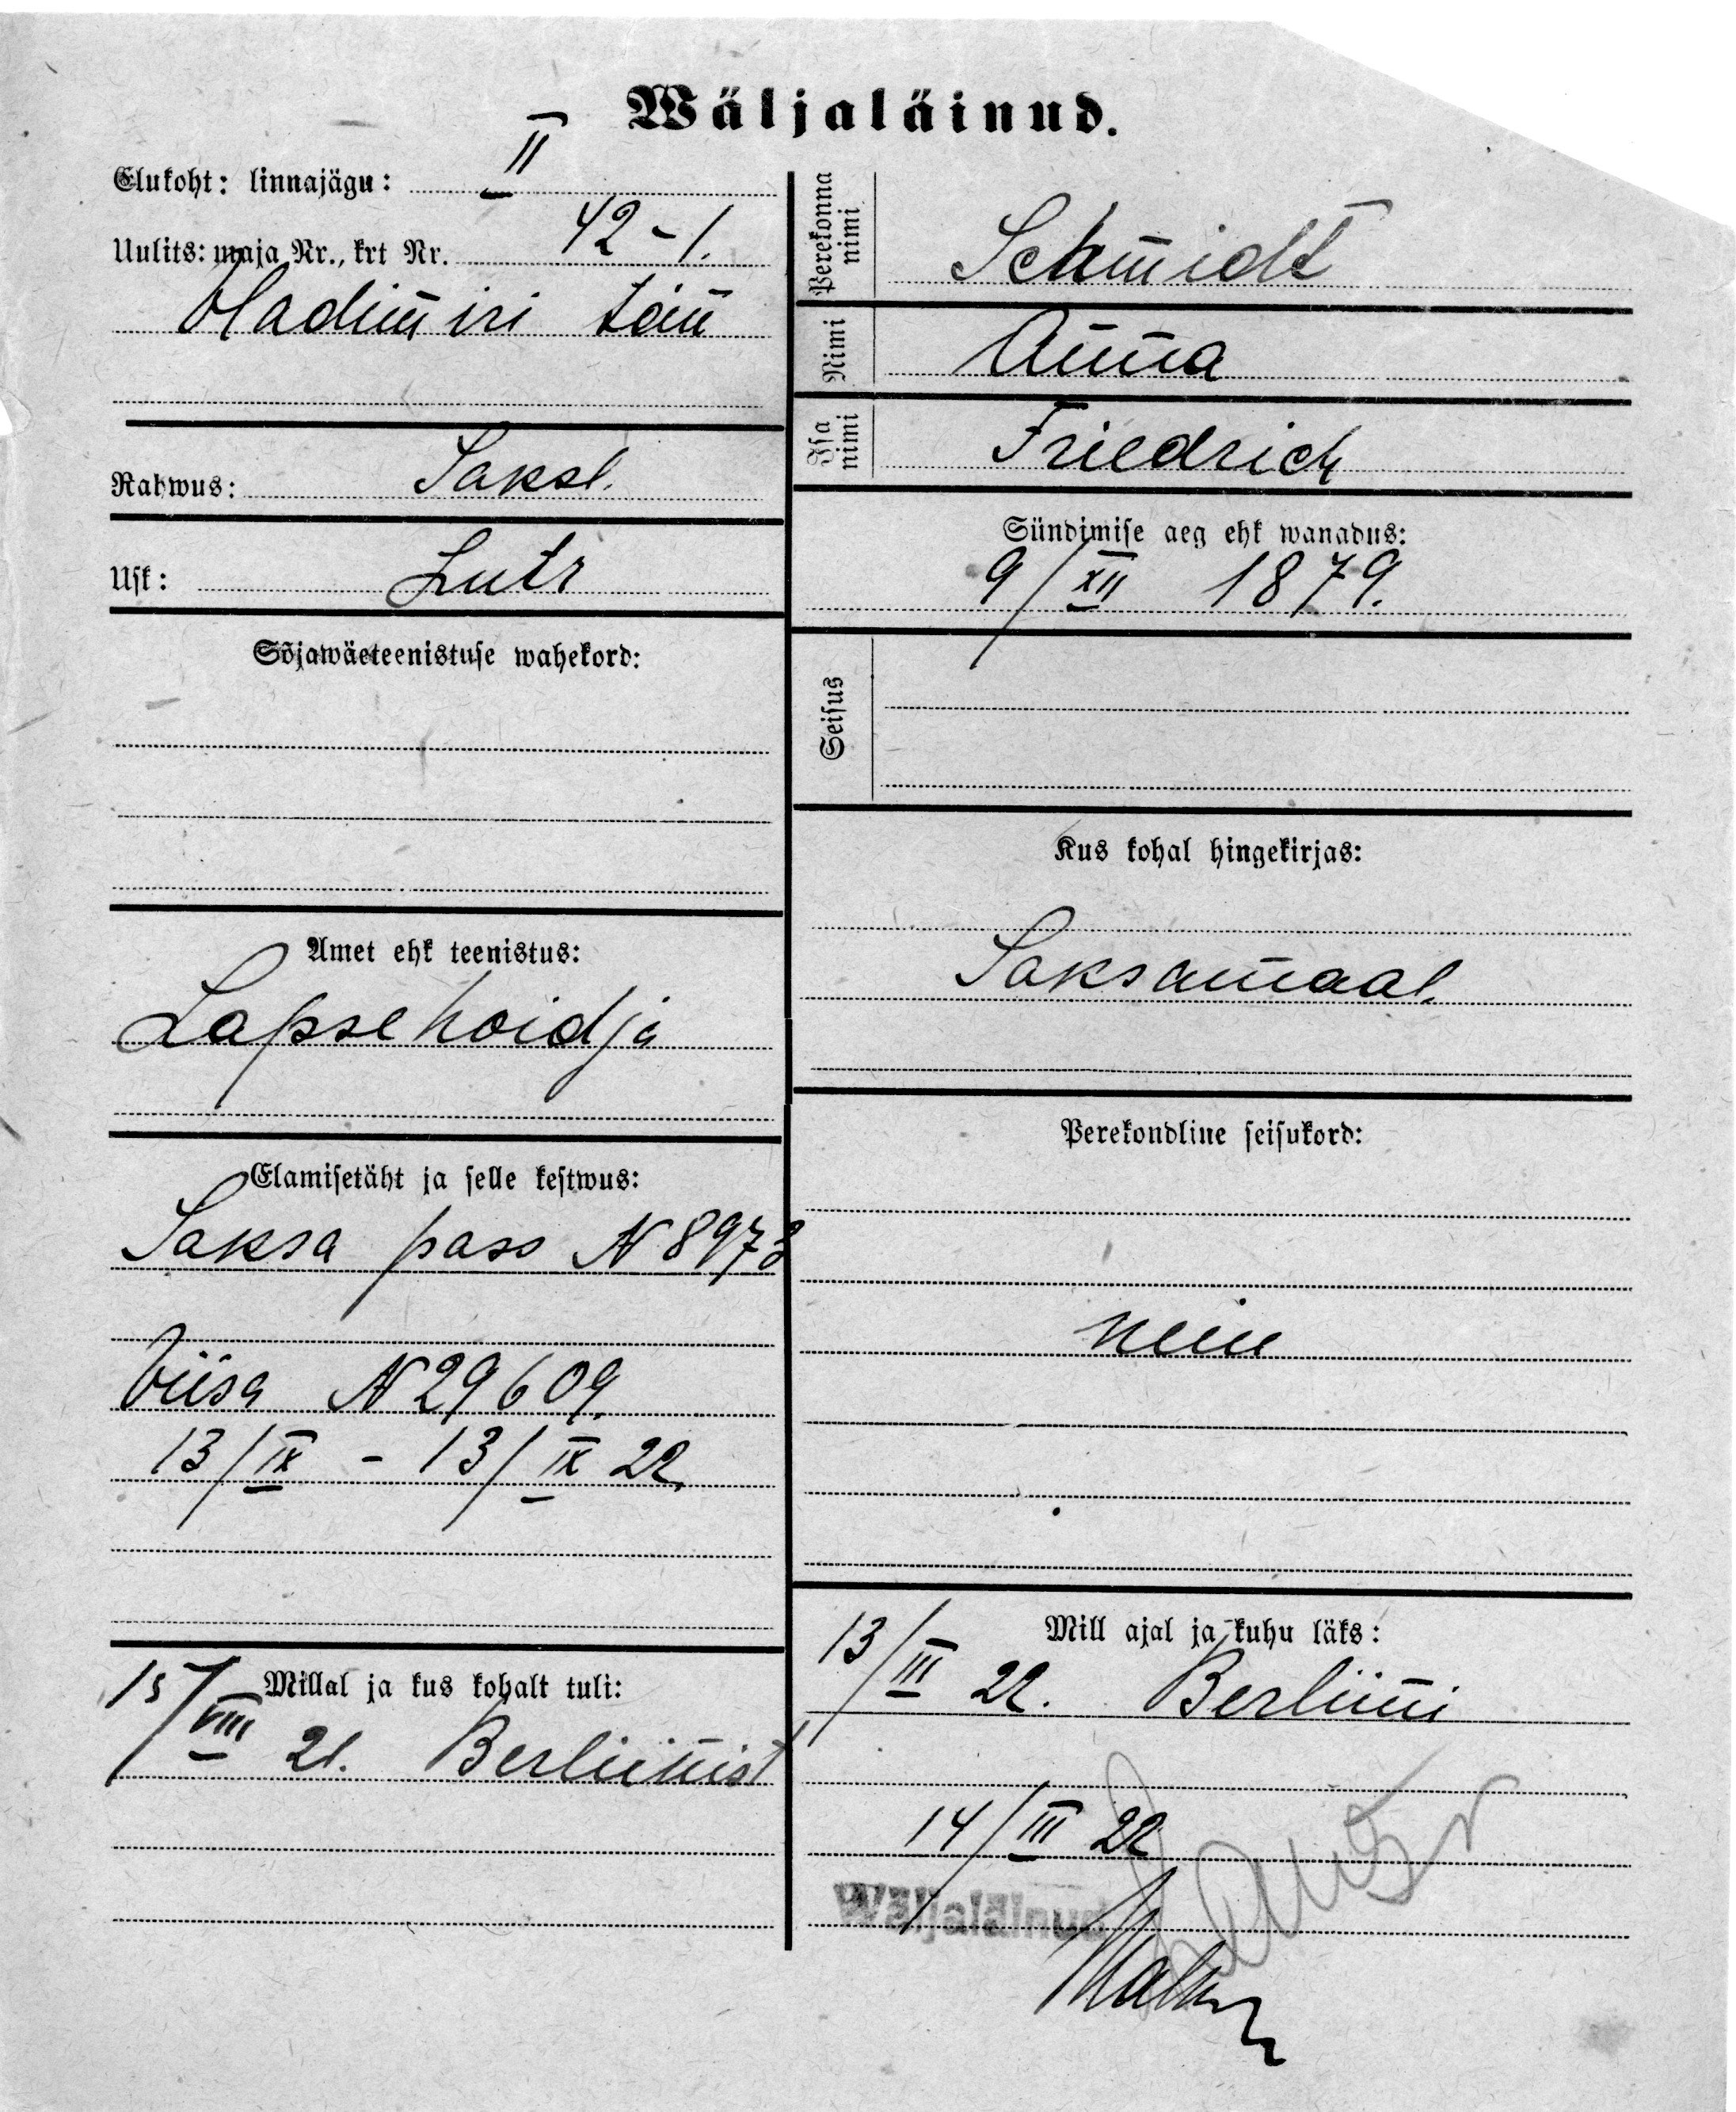 Wäljaläinud.
Elukoht: linnajägu: II
Uulits: maja Nr., krt Nr. 42-1.
Vladimiri tän
Rahwus: Saksl.
Usk: Lutr
Sõjawäeteenistuse wahekord:
Amet ehk teenistus:
Lapsehoidja
Elamisetäht ja selle kestwus:
Saksa pass N 8973
Viisa N 29609.
13/IX - 13/IX 22.
Millal ja kus kohalt tuli:
15/VIII 21. Berliinist
Perekonna nimi Schmidt
Nimi Anna
Isa nimi Friedrich
Sündimise aeg ehk wanadus:
9/XII 1879.
Seisus
Kus kohal hingekirjas:
Saksamaal.
Perekondline seisukord:
neiu
Mill ajal ja kuhu läks:
13/III 22. Berliini
14/III 22
Wäljaläinud